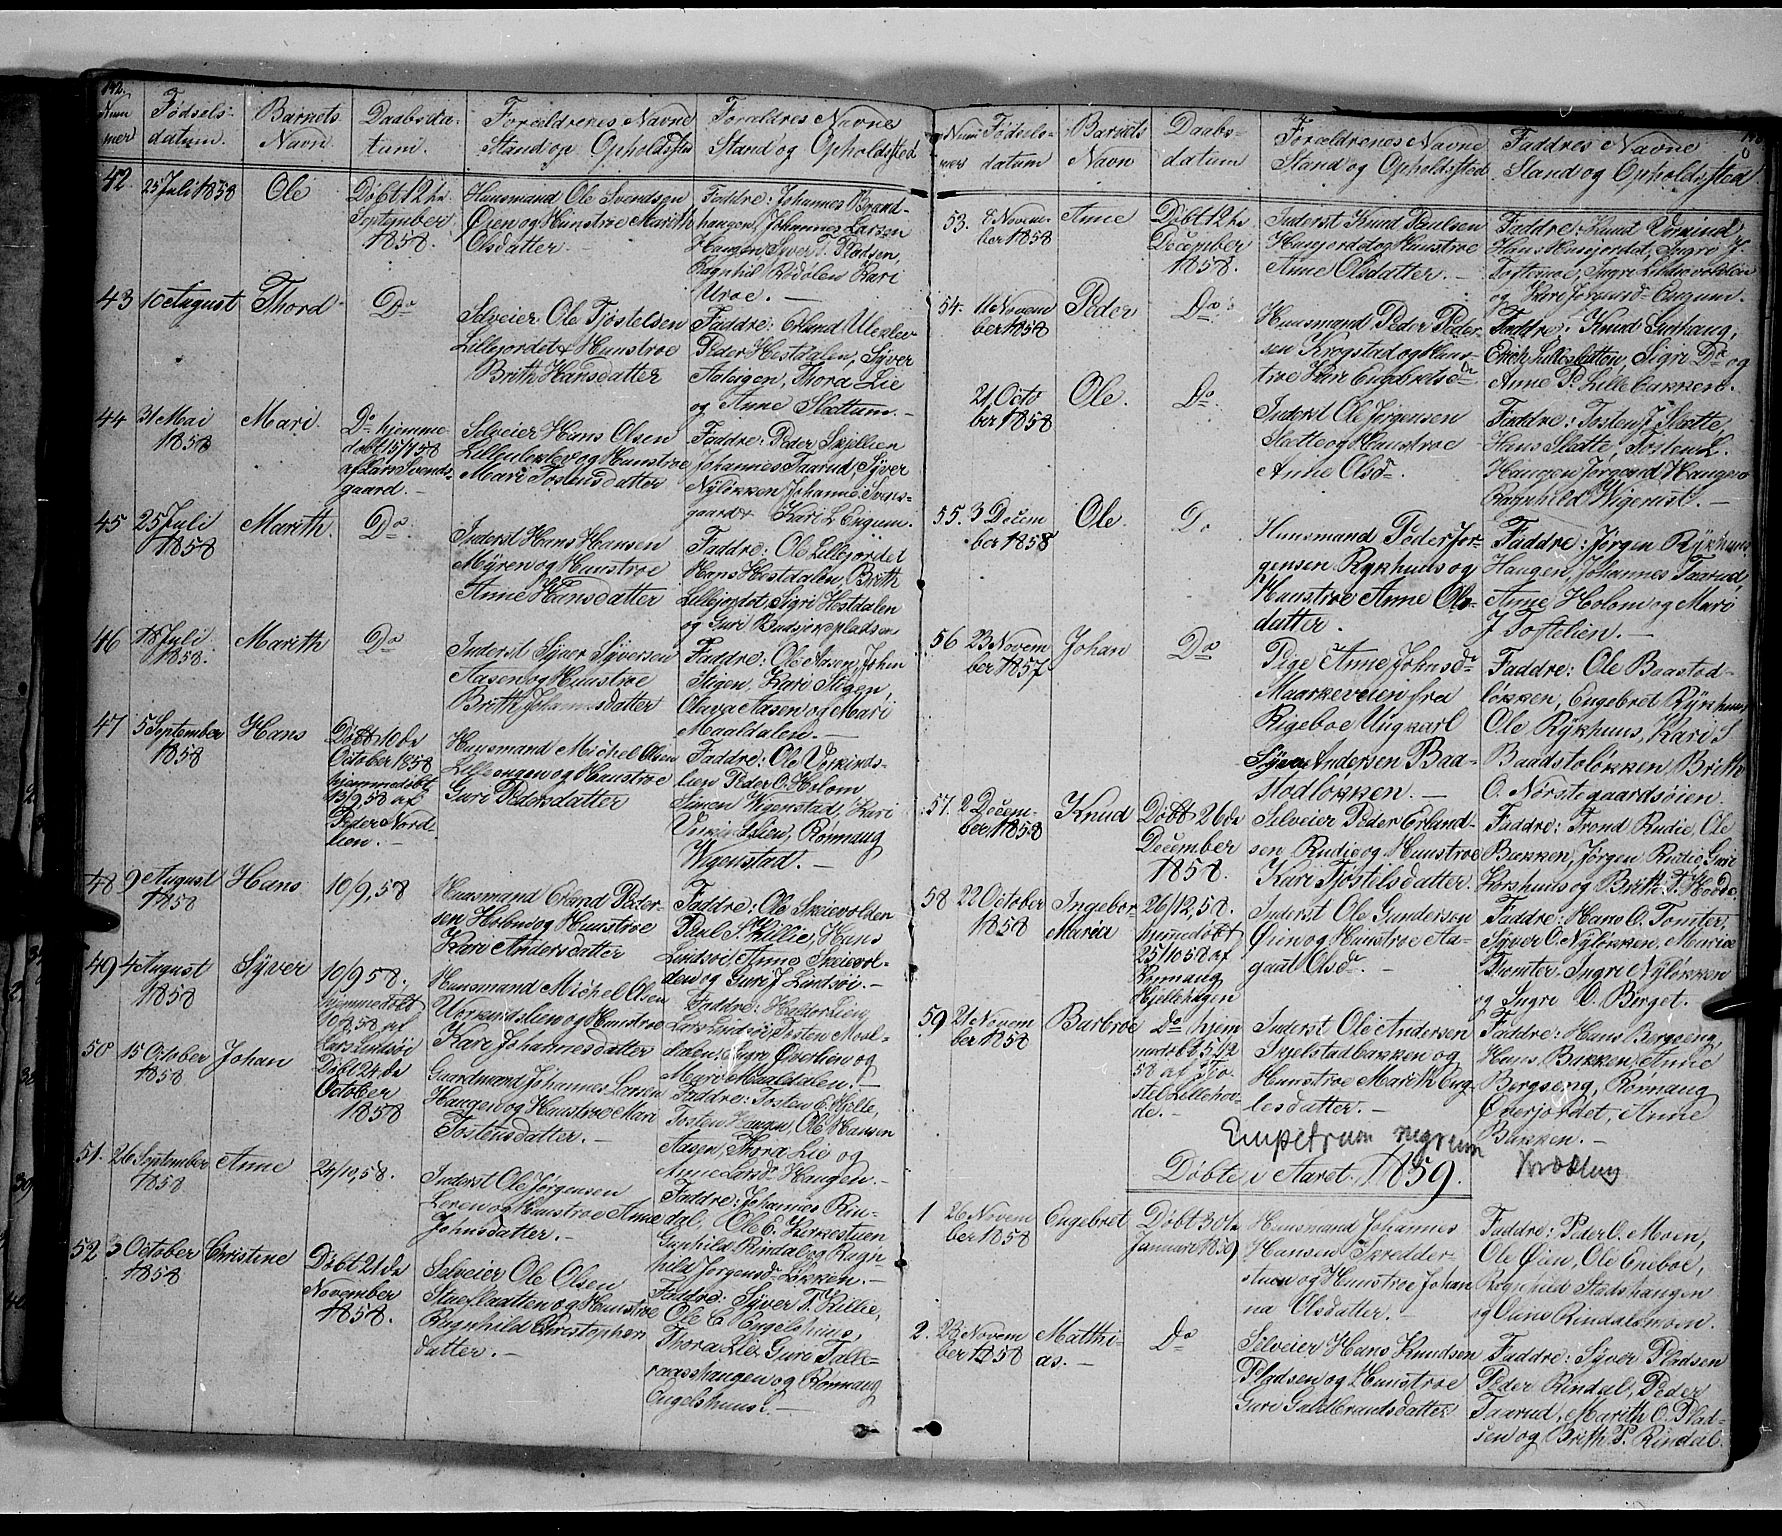 142.
Num
mer
Fødsels-
datum.
Barnets
Navn.
Daabsda-
tum.
Forældrenes Navne
Stand og Opholdssted
Forældres Navne
Stand og Opholdssted
42.
25 Juli 1858
Ole
Döbt 12te
September
1858.
Huusmand Ole Svendsen
Øien og Hunstroe Marith
Olsdatter.
Faddre: Johannes Brand-
hangen, Johannes Larsen
Haugen, Syver T. Pladsen,
Ragnhil Kari
Uroe. —
43
10 August
Thord
Do
Selveier Ole Tjøstelsen
Lillejordet & Hunstroe
Brith Hansdatter
Faddre: Erland Uleklev
Peder Hestdalen, Syver
Aateigen, Thora Lie
og Anne Slettum. —
44
31 Mai
1858
Mari.
Do hjemme-
døbt 15/7 58
af Lars Svends-
gaard. —
Selveier Hans Olsen
Lilleuleklev og Hunstroe
Mari Tostensdatter
Faddre: Peder Skjellien
Johannes Taarud, Syver
Nyløkken, Johanne Svens-
gaard & Kari L Eigum.
45
25 Juli
1858
Marith.
Do
Inderst Hans Hansen
Myren og Hunstroe
Anne Hansdatter
Faddre: Ole Lillejordet
Hans Hestdalen, Brith
Lillejordet, Sigri Hestdalen
og Guri Budsjordpladsen
46
18 Juli
1858.
Marith
Do
Inderst Syver Syversen
Aasen og Hunstroe
Brith Johannesdatter
Faddre: Ole Aasen, John
Stigen, Kari Stigen,
Olava Aasen og Mari
Maaldalen. —
47
5 September
1858
Hans
Döbt 10de
October 1858
hjemmedøbt
13/9 58 af
Peder Nord-
lien. —
Huusmand Michel Olsen
Lilleengen og Hunstroe
Guri Pedersdatter
Faddre: Ole Vorkinds-
lien Peder O. Holom
Simen Wigenstad, Kari
Vorkindslien, Rønnaug
Wigenstad. —
48
9 August
1858
Hans
10/9, 58
Huusmand Erland Peder-
sen Holen og Hunstroe
Kari Andersdatter
Faddre: Ole Skeievolden
Poul S. Killie, Hans
Lindsøi, Anne Skeievol-
den og Guri J. Lindsøi. —
49
4 August
1858
Syver
10/9 58,
hjemmedøbt
10/8, 58 af
Lars Lindsøi
Huusmand Michel Olsen
Vorkindslien og Hunstroe
Kari Johannesdatter
Faddre: Haldor Lien,
Lars Lindsøi, Tosten Maal-
dalen, Ingri Øvrelien og
Mari Maaldalen. —
50
15 October
1858
Johan
Döbt 24de
October
1858
Gaardmand Johannes Larsen
Haugen og Hunstroe Mari
Tostensdatter. —
Faddre: Tosten E. Hjelle,
Tosten Haugen, Ole Hansen
Aasen, Thora Lie og
Anne Larsd. Haugen. —
51.
26 September
1858
Anne
24/10, 58.
Inderst Ole Jørgensen
Loren og Hunstroe Anne
Johnsdatter. —
Faddre: Johannes Rin-
dal, Ole E. Korkestuen
Gunhild Rindal og Ragn
hild Jørgensd. Løkken. —
52
3 October
1858
Christine
Döbt 21de
November
1858.
Selveier Ole Olsen
Stueflaatten og Hunstroe
Ragnhild Christophers
datter. —
Faddre: Syver T. Killie,
Ole E. Engelshuus,
Thora Lie, Guro Talle-
raashangen og Rønnaug
Engelshuus. —
Num
mer
Fødsels-
datum
Barnets
Navn
Daabs-
datum
Forældrenes Navne
Stand og Opholdssted
Faddres Navne
Stand og Opholdssted
53.
8 Novem-
ber 1858
Anne
Döbt 12te
December
1858.
Inderst Knud Paulsen
Haugjordet og Hunstroe
Anne Olsdatter. —
Faddre: Knud Romund,
Hans Mosjordet, Ingri J
Toftemoe, Ingri Lindsøvolden
og Kari Jørgensd. Engum.
54.
16 Novem
ber 1858
Peder
Do
Huusmand Peder Peder-
sen Krogstad og Huus-
troe Kari Engebretsdr
Faddre: Knud Giehaug,
Erich Lillesletten, Sigri Do og
Anne P. Lillebakken.
21 Octo
ber 1858
Ole.
Do
Inderst Ole Jørgensen
Slette og Hunstroe
Anne Olsdr.
Faddre: Tosten J Slette,
Hans Slette, Tosten L.
Haugen, Jørgaard Haugen
Ragnhild Wigerust. —
55.
3 Decem
ber 1858
Ole.
Do
Huusmand Peder Jør-
gensen Rykhuus og
Hunstroe Anne Ols-
datter.
Faddre: Jørgen Rykhuus
Haugen, Johannes Taarud,
Anne Holom og Mari
J Toftelien. —
56
23 Novem
ber 1857
Johan
Do
Pige Anne Johnsdr
Maarkeveien fra
Ringeboe Ungkarl
Syver Andersen Baa-
stadløkken. —
Faddre: Ole Baastad-
løkken, Engebret Rykhuus,
Ole Rykhuus, Kari S
Baadstoløkken Brith
O. Nørstegaardsøien.
57.
2 Decem-
ber 1858
Knud
Döbt 26de
December
1858.
Selveier Peder Erland-
sen Rudie og Hunstroe
Kari Tjøstelsdatter.
Faddre: Trond Rudie, Ole
Bakken, Jørgen Rudie, Guri
Korshuus og Brith T. Hovde
58
22 October
1858
Ingebor-
Maria
26/12, 58.
hjemedøbt
25/10 58 af
Rønnaug
Hjellehagen
Inderst Ole Gundersen
Øien og Hunstroe Aa-
gaut Olsdr. —
Faddre: Hans O. Tomter,
Syver O. Nyløkken, Maria
Tomter, Ingri Nyløkken
og Ingri O. Berget.
59
21 Novem
ber 1858
Barbroe
Do hjem
medøbt 5/12
58 af Tjo-
stel Lillehov-
de. —
Inderst Ole Andersen
Skjelstadbakken og
Hunstroe Marith Eng-
lesdatter. —
Faddre: Hans Bergseng,
Hans Bakken, Anne
Bergseng, Rønnaug
Øverjordet, Anne
Bakken. —
Empetrum nigrum
Krækling
Döbte i Aaret 1859.
1
26 Novem
ber 1858
Engebret
Döbt 30te
Januar 1859,
Huusmand Johannes
Hansen Skredder-
stuen og Hunstroe Johan
na Olsdatter. —
Faddre: Peder O. Moen,
Ole Øien, Ole Eneboe,
Ragnhild Stadshaugen
og Oline Rindalsmoen.
2.
23 Novem
ber 1858
Matthi-
as. —
Do
Selveier Hans Knudsen
Pladsen og Hunstroe
Guri Guldbrandsdatter
Faddre: Syver Pladsen
Peder Rindal, Peder
Taarud, Marith O. Plad-
sen og Brith P. Rindal.